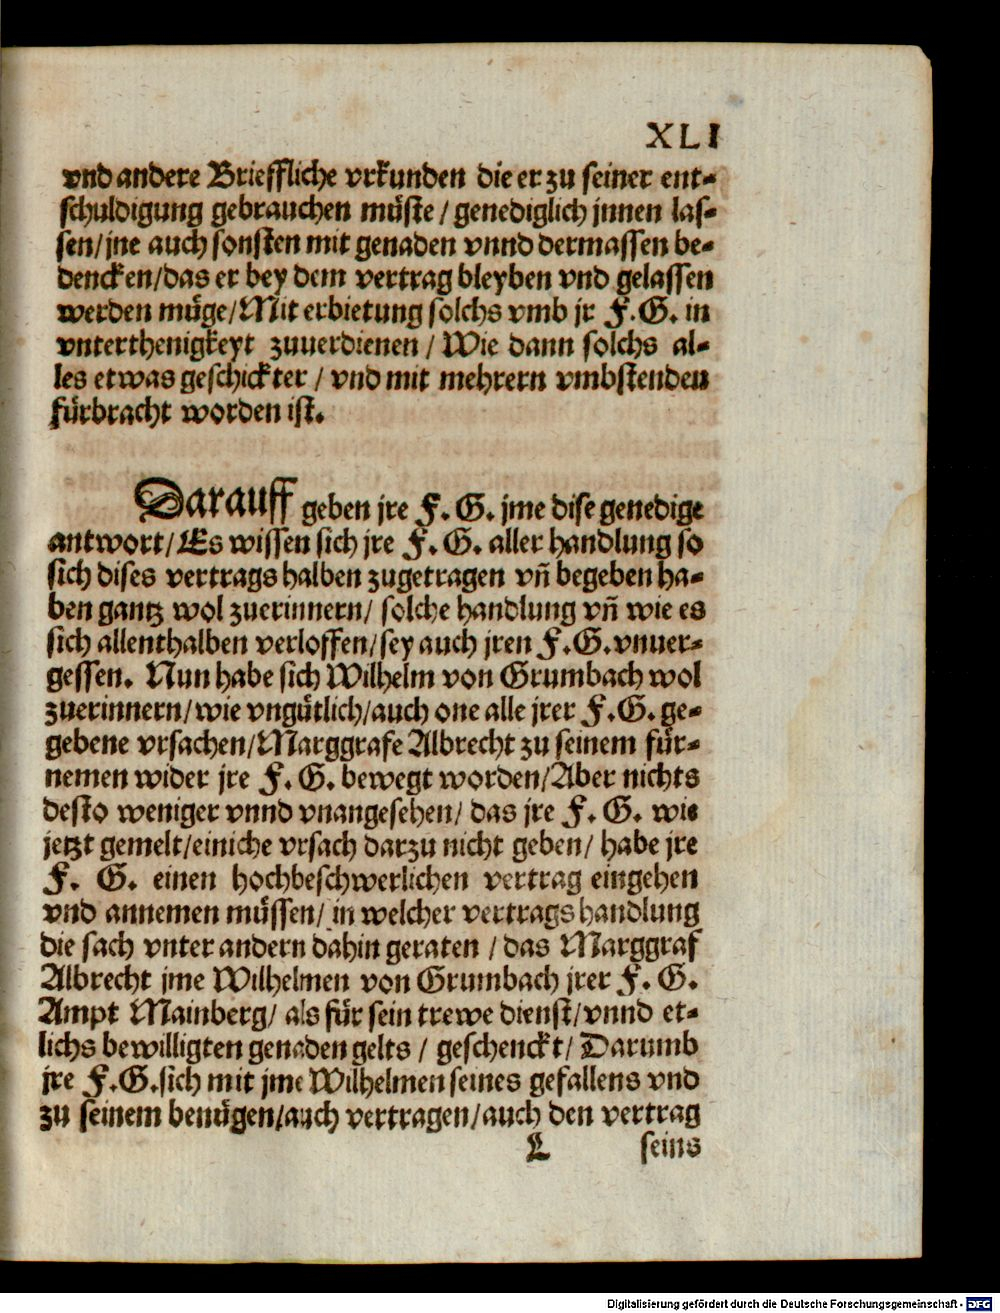 XLI
vnd andere Brieffliche vrkunden die er zu seiner ent-
schuldigung gebrauchen müste / genediglich jnnen las-
sen/jne auch sonsten mit genaden vnnd dermassen be-
dencken/das er bey dem vertrag bleyben vnd gelassen
werden müge/Mit erbietung solchs vmb jr F.G. in
vnterthenigkeyt zuuerdienen / Wie dann solchs al-
les etwas geschickter / vnd mit mehrern vmbstenden
fürbracht worden ist.
Darauff geben jre F.G. jme dise genedige
antwort/Es wissen sich jre F.G. aller handlung so
sich dises vertrags halben zugetragen vñ begeben ha-
ben gantz wol zuerinnern/ solche handlung vñ wie es
sich allenthalben verloffen/sey auch jren F.G.vnuer-
gessen. Nun habe sich Wilhelm von Grumbach wol
zuerinnern/wie vngütlich/auch one alle jrer F.G. ge-
gebene vrsachen/Marggrafe Albrecht zu seinem für-
nemen wider jre F.G. bewegt worden/Aber nichts
desto weniger vnnd vnangesehen/ das jre F.G. wie
jetzt gemelt/einiche vrsach darzu nicht geben/ habe jre
F. G. einen hochbeschwerlichen vertrag eingehen
vnd annemen müssen/ in welcher vertrags handlung
die sach vnter andern dahin geraten / das Marggraf
Albrecht jme Wilhelmen von Grumbach jrer F.G.
Ampt Mainberg/ als für sein trewe dienst/vnnd et-
lichs bewilligten genaden gelts / geschenckt/ Darumb
jre F.G.sich mit jme Wilhelmen seines gefallens vnd
zu seinem benügen/auch vertragen/auch den vertrag
L seins
Digitalisierung gefördert durch die Deutsche Forschungsgemeinschaft - DFG